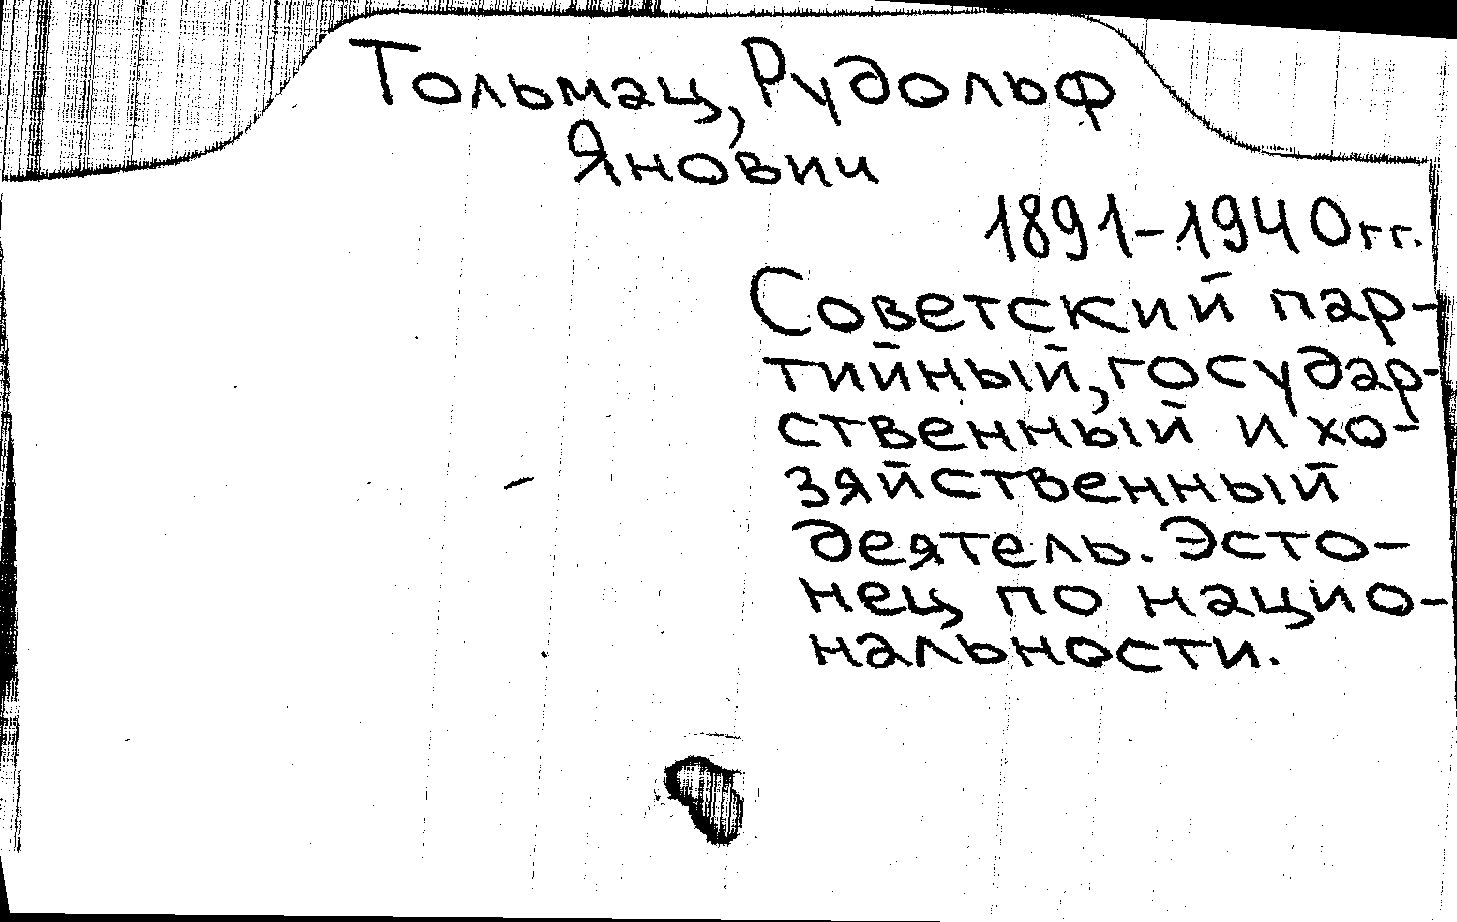 Тольмац, Рудольф
Янович
1891-1940 гг.
Советский пар-
тийный, государ-
ственный и хо-
зяйственный
деятель. Эсто-
нец по нацио-
нальности.